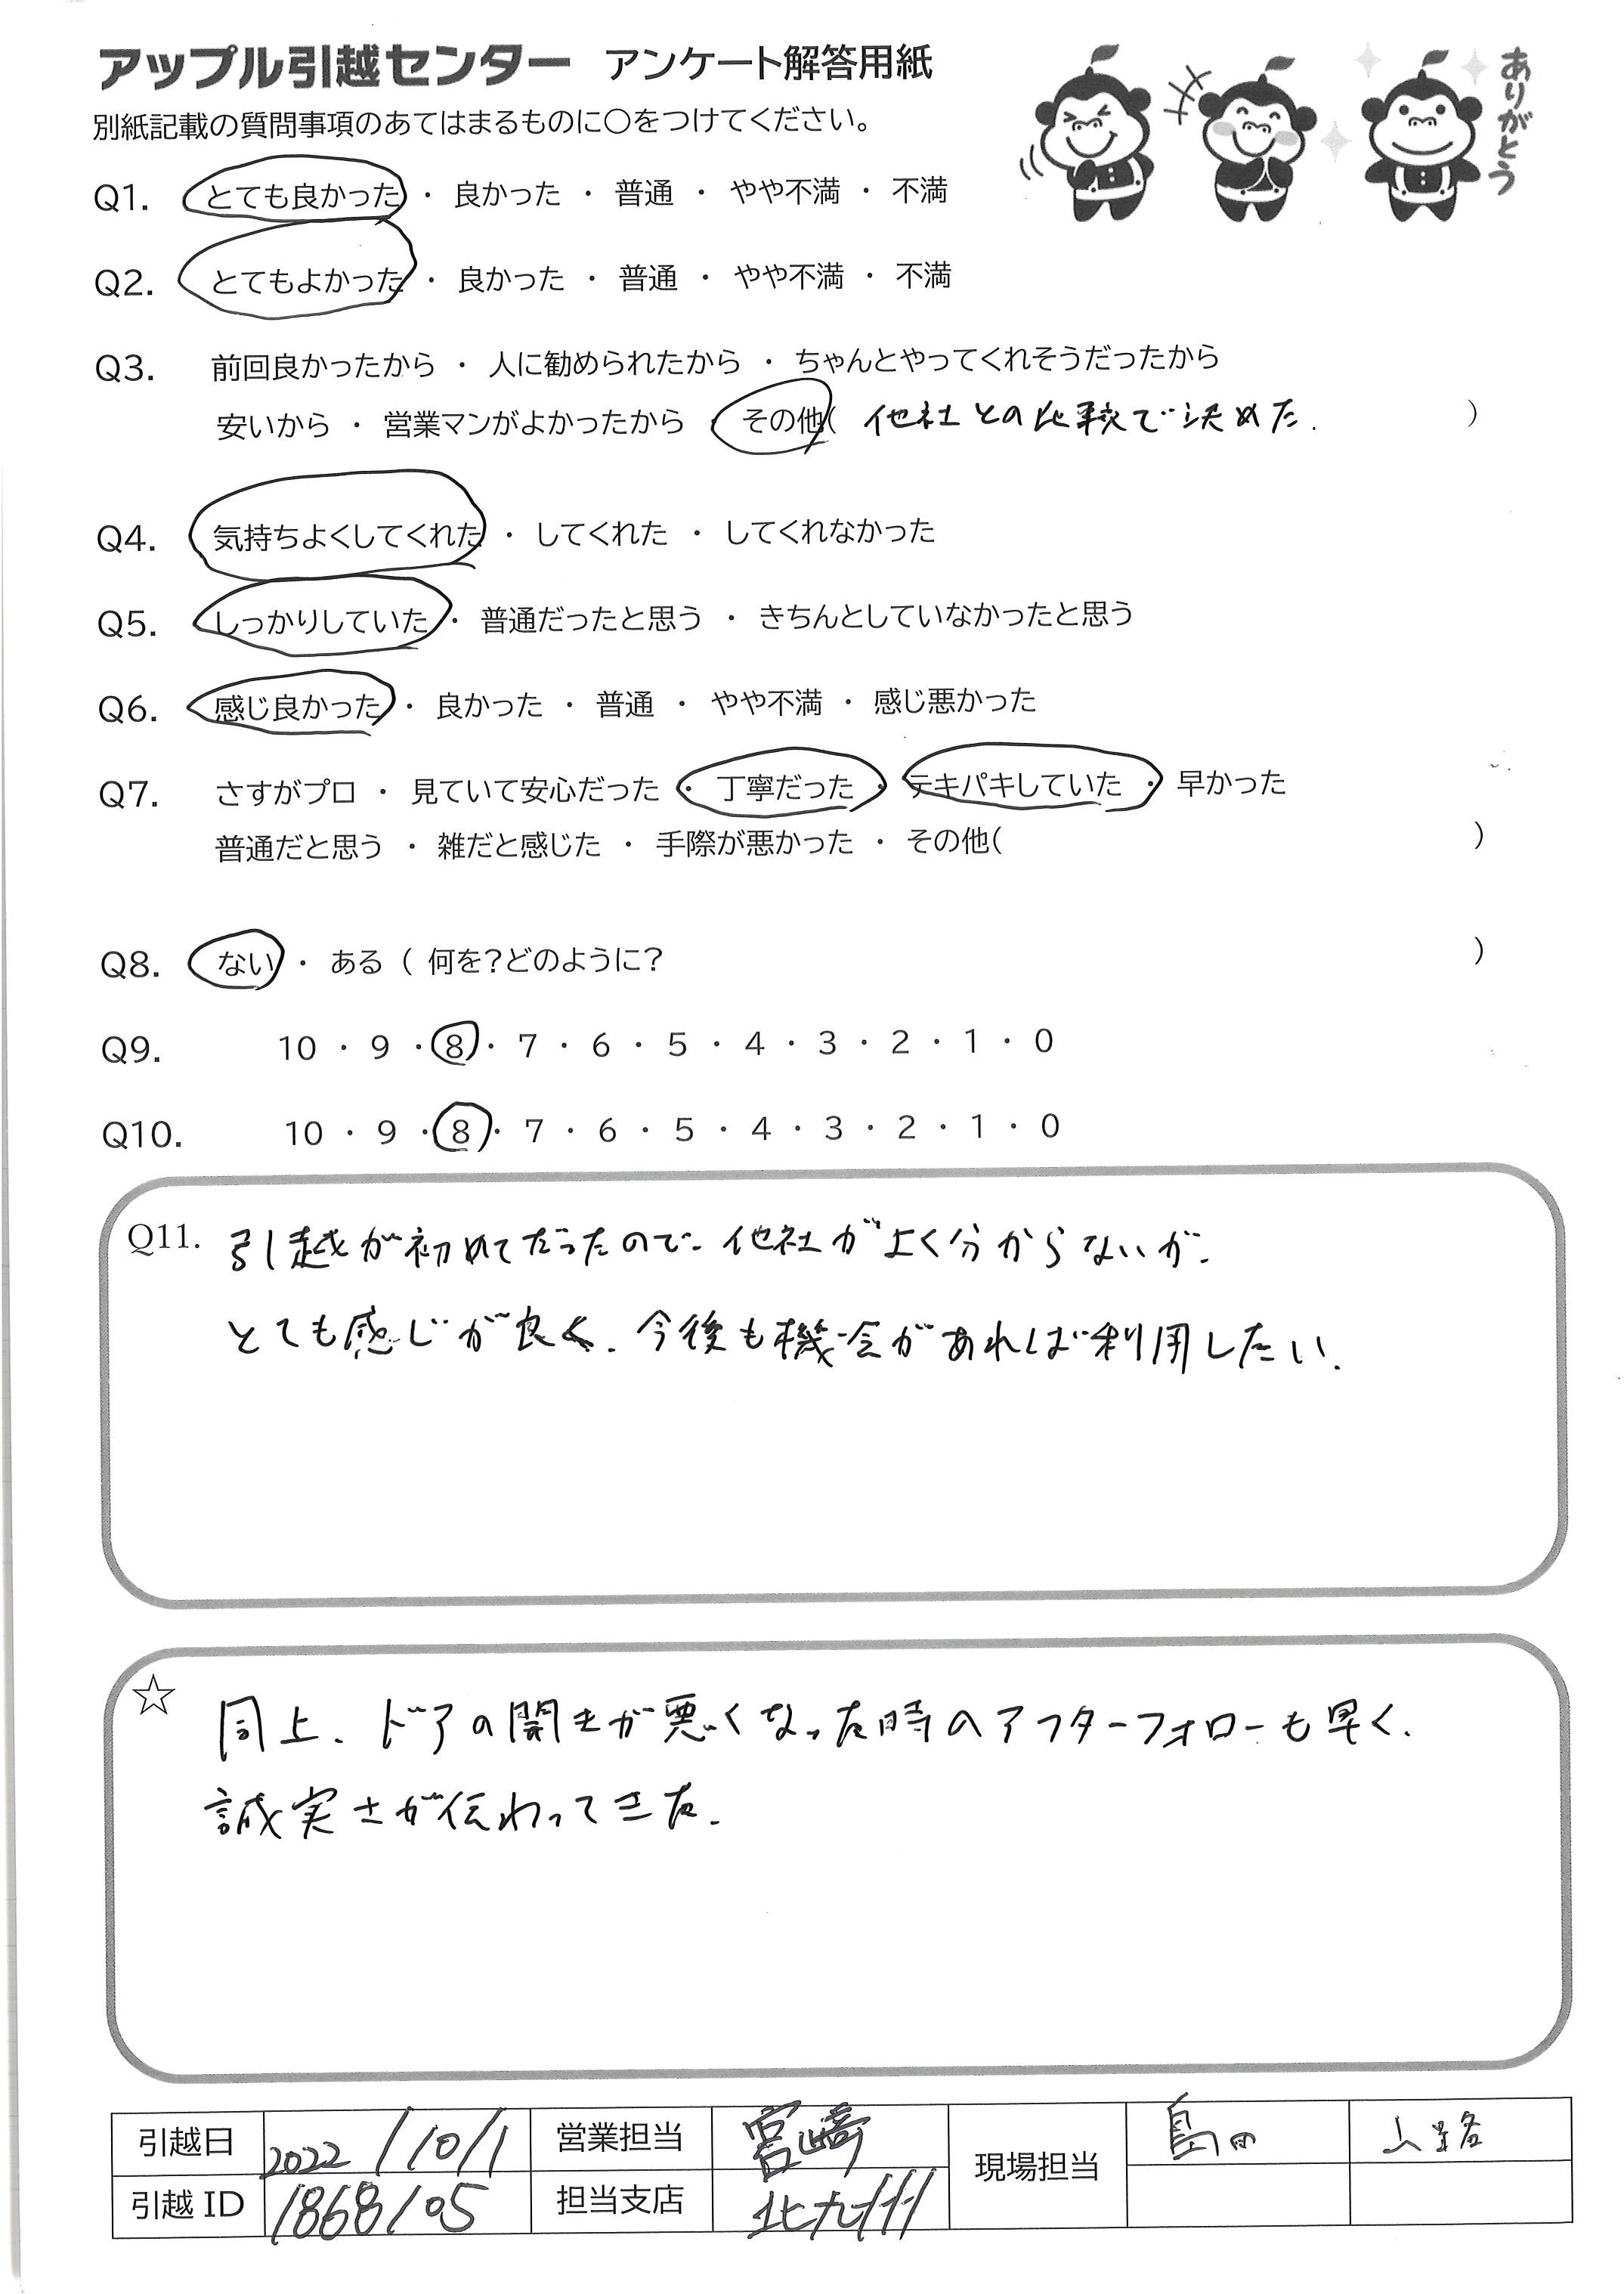 アップル引越センター アンケート解答用紙
ありがとう
別紙記載の質問事項のあてはまるものに〇をつけてください。
Q1. とても良かった ・ 良かった ・ 普通 ・ やや不満 ・ 不満
Q2. とてもよかった ・ 良かった ・ 普通 ・ やや不満 ・ 不満
Q3. 前回良かったから ・ 人に勧められたから ・ ちゃんとやってくれそうだったから
安いから ・ 営業マンがよかったから ・ その他( 他社との比較で決めた. )
Q4. 気持ちよくしてくれた ・ してくれた ・ してくれなかった
Q5. しっかりしていた ・ 普通だったと思う ・ きちんとしていなかったと思う
Q6. 感じ良かった ・ 良かった ・ 普通 ・ やや不満 ・ 感じ悪かった
Q7. さすがプロ ・ 見ていて安心だった ・ 丁寧だった ・ テキパキしていた ・ 早かった
普通だと思う ・ 雑だと感じた ・ 手際が悪かった ・ その他( )
Q8. ない ・ ある ( 何を?どのように? )
Q9. 10 ・ 9 ・ 8 ・ 7 ・ 6 ・ 5 ・ 4 ・ 3 ・ 2 ・ 1 ・ 0
Q10. 10 ・ 9 ・ 8 ・ 7 ・ 6 ・ 5 ・ 4 ・ 3 ・ 2 ・ 1 ・ 0
Q11. 引越が初めてだったので、他社がよく分からないが、
とても感じが良く、今後も機会があれば利用したい.
☆ 同上、ドアの開きが悪くなった時のアフターフォローも早く、
誠実さが伝わってきた.
引越日 2022/10/1 営業担当 宮崎 現場担当 島田
引越ID 1868105 担当支店 北九州